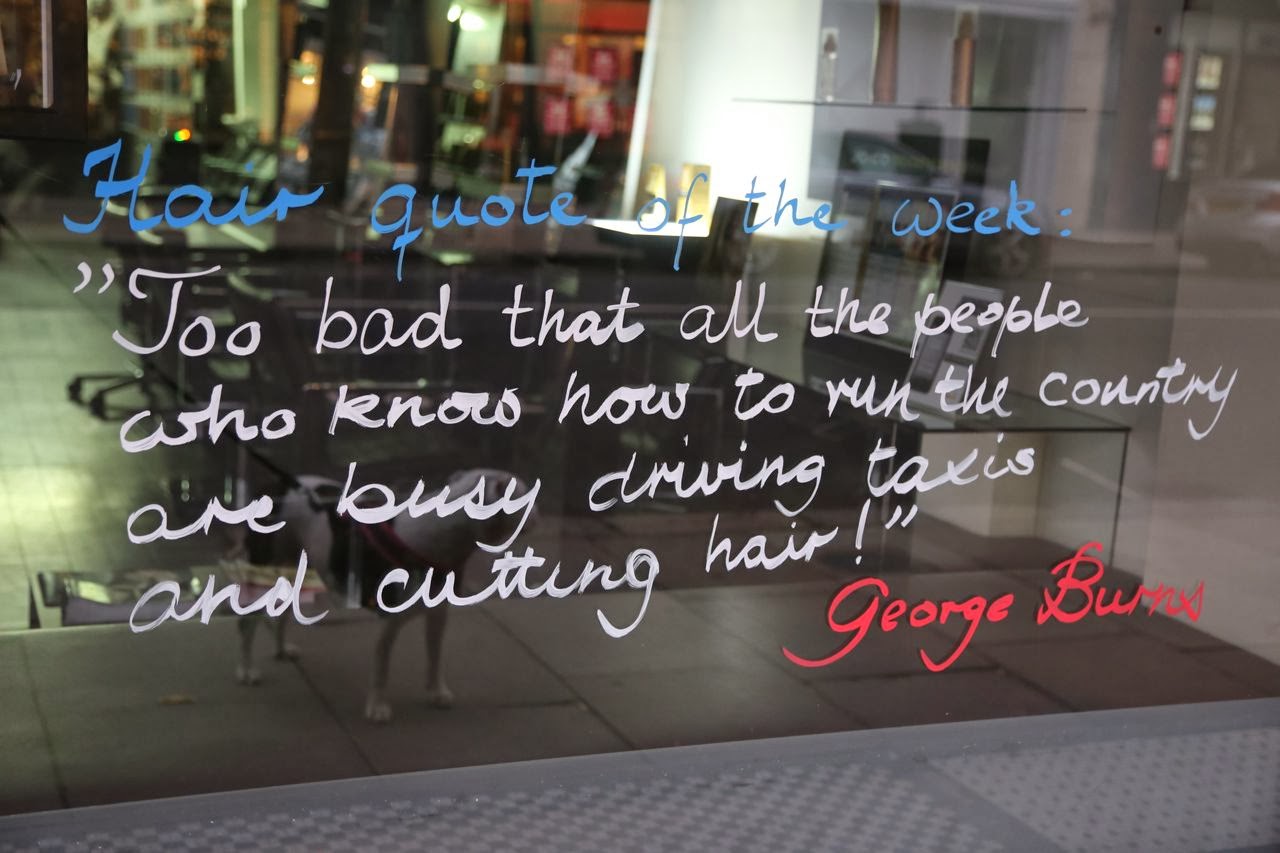 Hair quote of the week:
"Too bad that all the people
who know how to run the country
are busy driving taxis
and cutting hair!"
George Burns